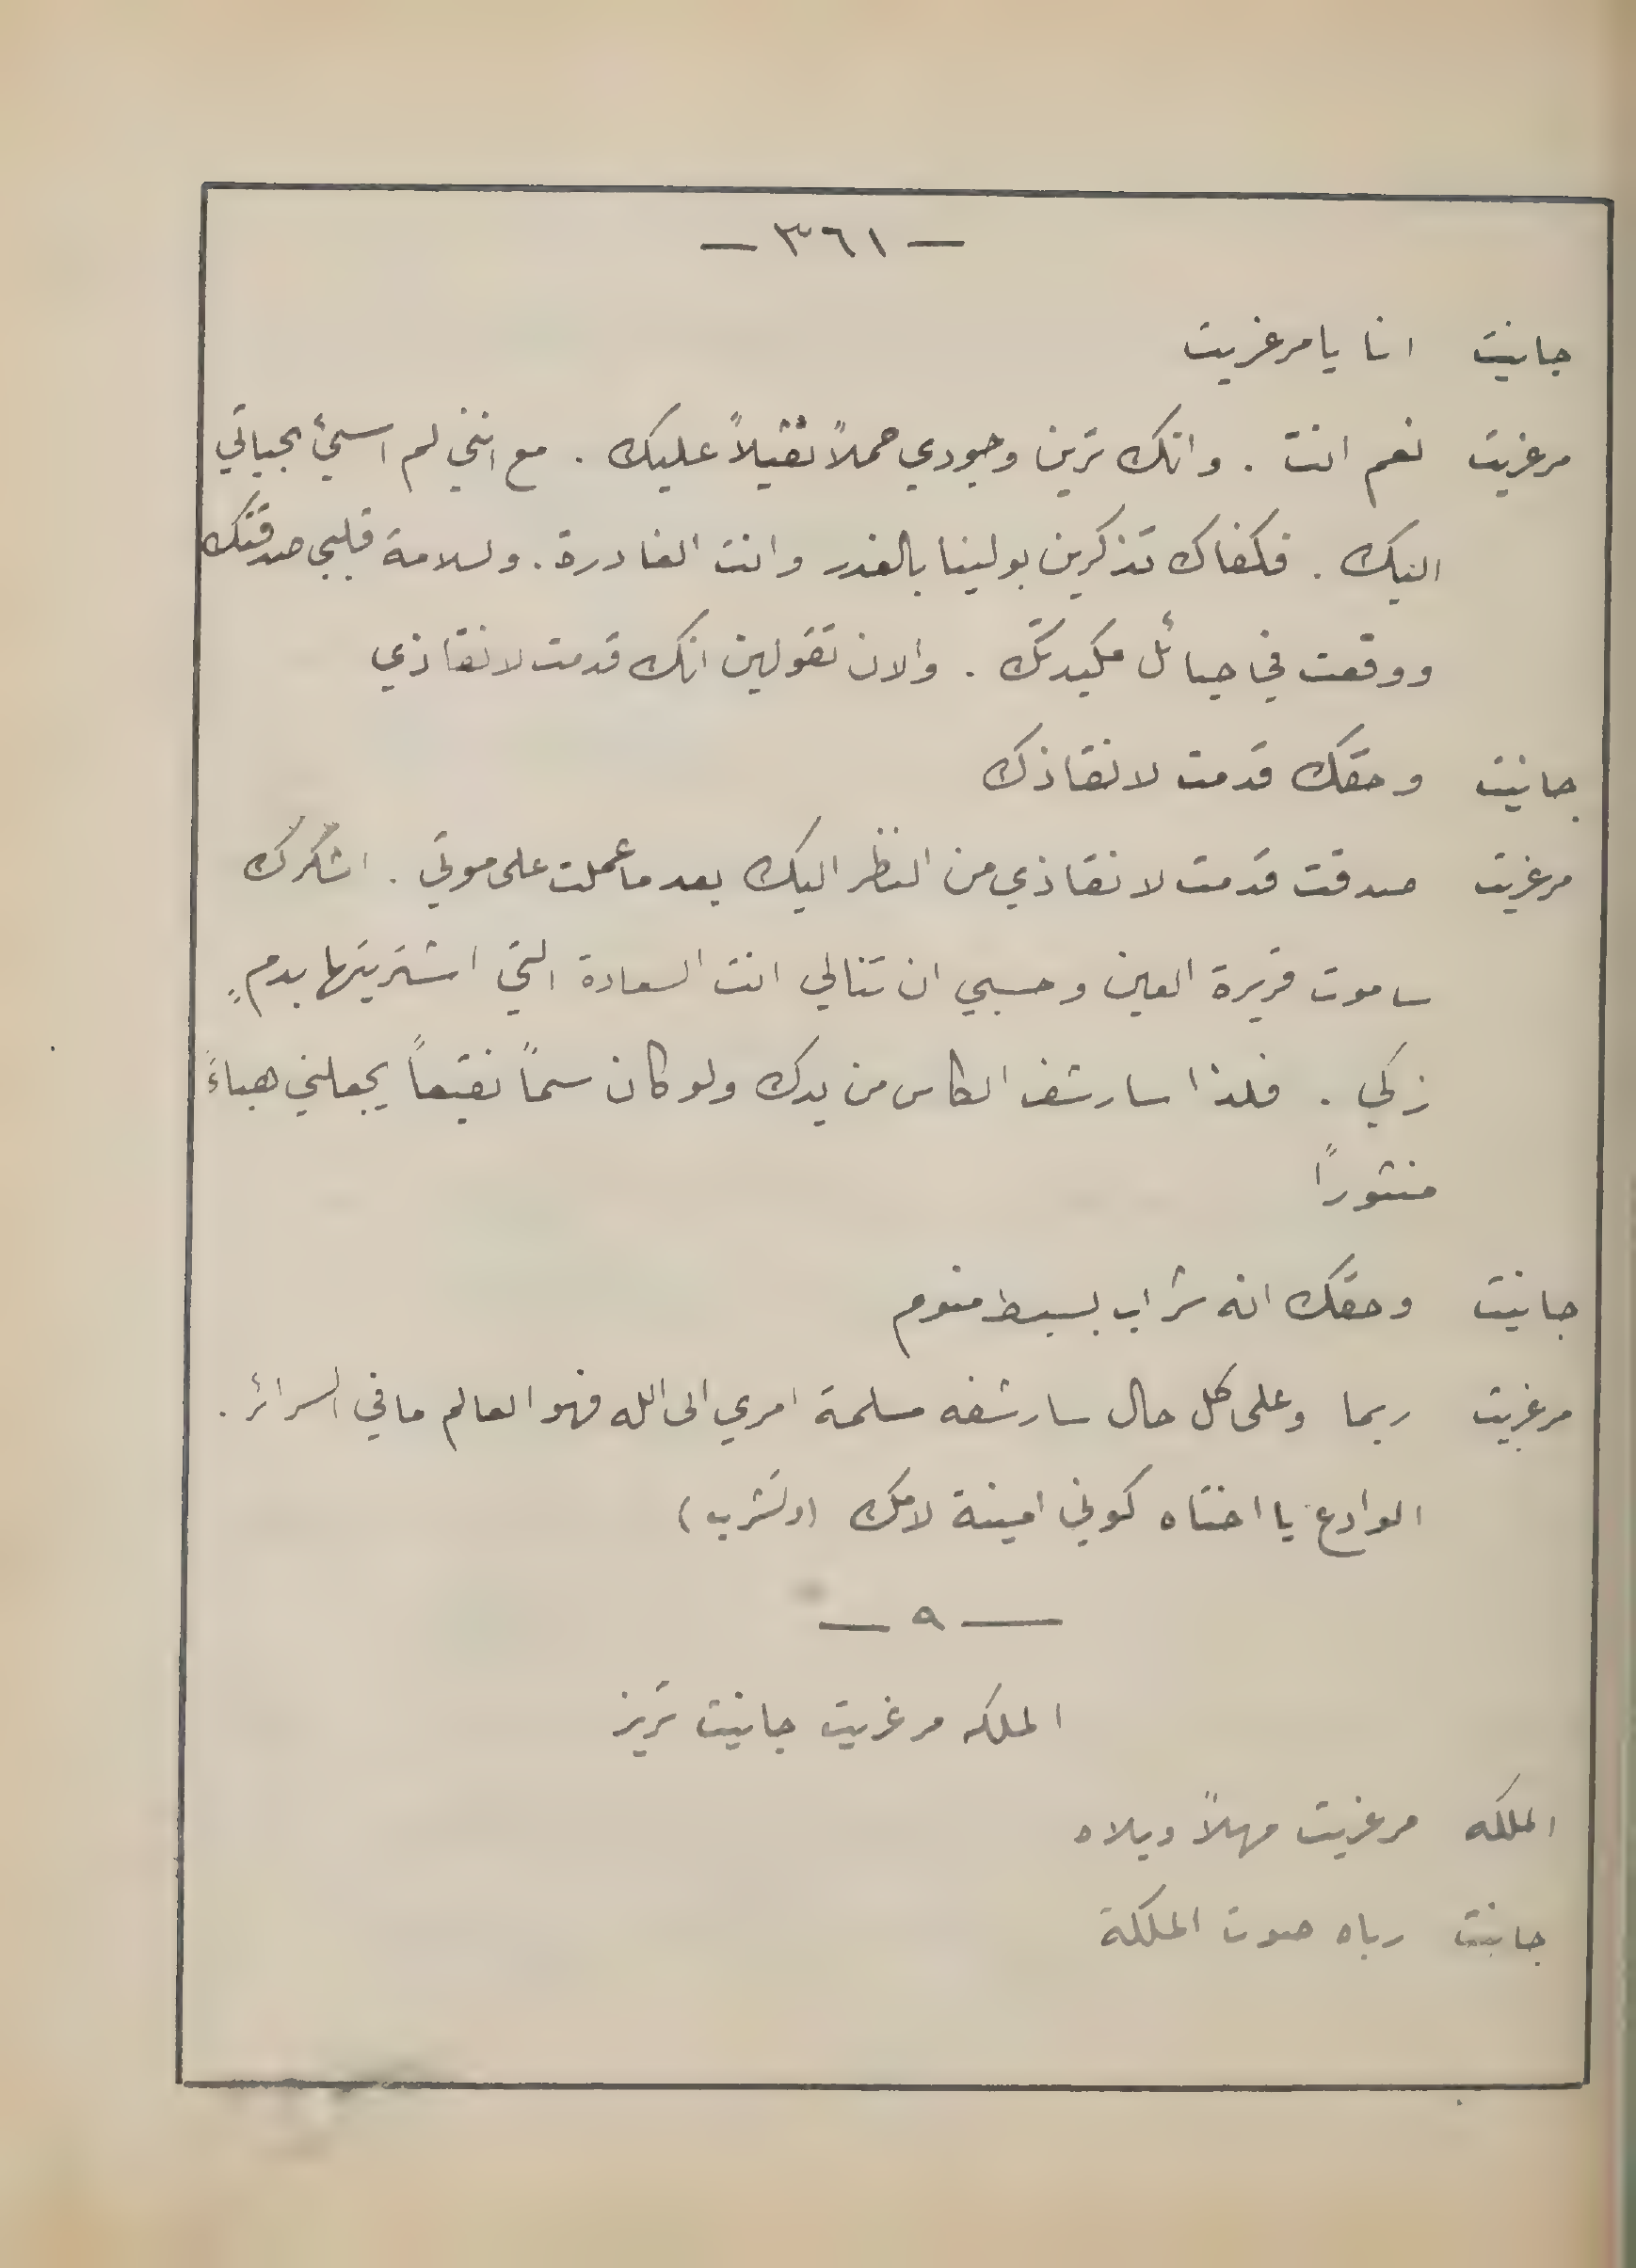 — ٣٦١ —
جانيت انا يا مرغريت
مرغريت نعم انت . وانك ترين وجودي حملاً ثقيلاً عليك . مع انني لم اسئ بحياتي
اليك . فكفاك تذكرين بولينا بالغدر وانت الغادرة . ولسلامة قلبي صدقتك
ووقعت في حبائل مكيدتك . والان تقولين انك قدمت لانقاذي
جانيت وحقك قدمت لانقاذك
مرغريت صدقت قدمت لانقاذي من النظر اليك بعد ما عملت على موتي . اشكرك
ساموت قريرة العين وحسبي ان تنالي انت السعادة التي اشتريتها بدمٍ
زكي . فلذا سارشف الكاس من يدك ولو كان سماً نقيعاً يجعلني هباءً
منثوراً
جانيت وحقك انه شراب بسيط منوم
مرغريت ربما وعلى كل حال سارشفه مسلمة امري الى الله فهو العالم ما في السرائر .
الوادع يا اختاه كوني امينة لامك (وتشرب)
— ٩ —
الملكه مرغريت جانيت تريز
الملكه مرغريت مهلاً ويلاه
جانيت رباه صوت الملكة